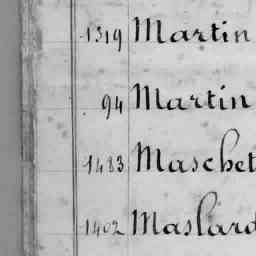 1319 Martin
94 Martin
1483 Maschet
1402 Maslard